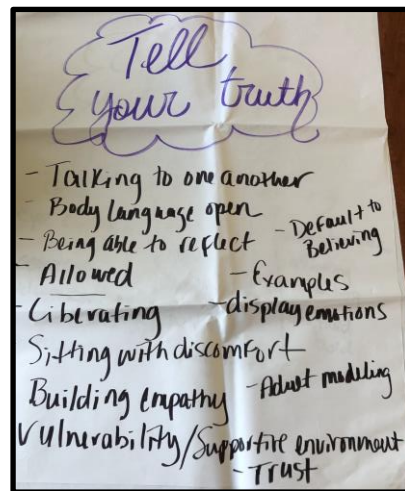 Tell
your truth
- Talking to one another
- Body language open
- Being able to reflect
- Default to
Believing
- Allowed
- Examples
- Liberating
- display emotions
Sitting with discomfort
Building empathy
- Adult modeling
Vulnerability/Supportive environment
- Trust